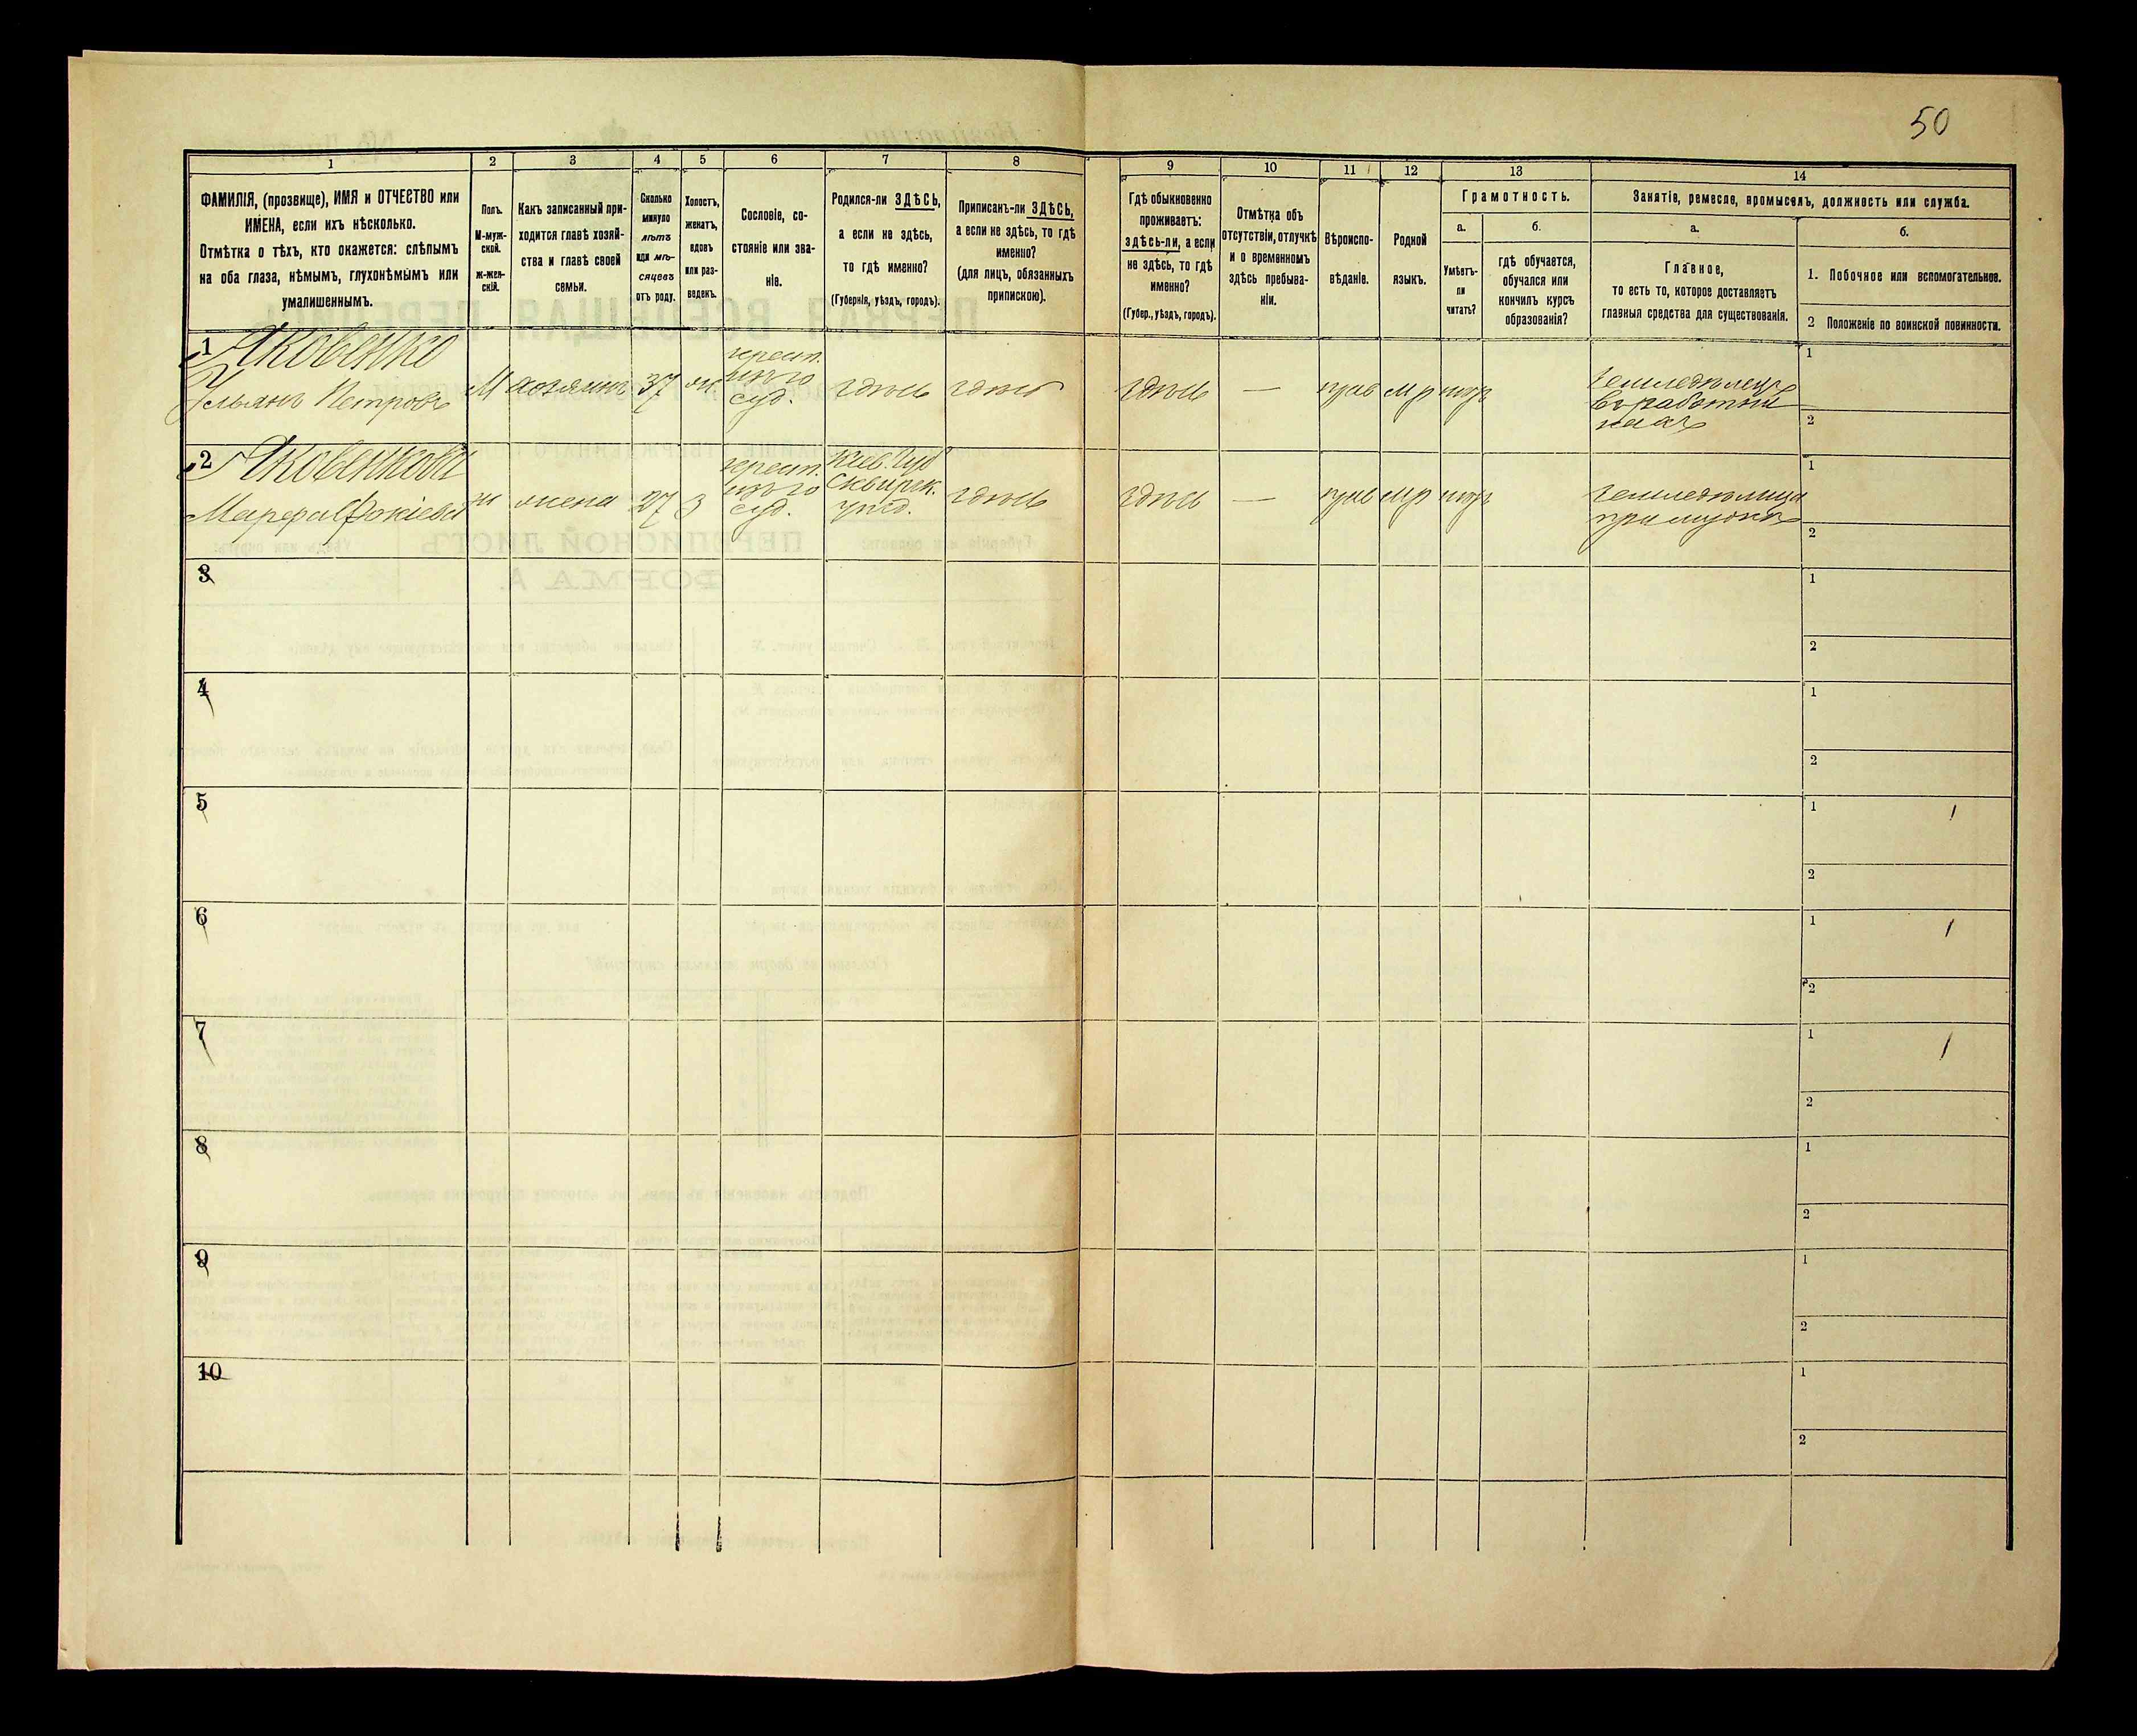 50
1
2
3
4
5
6
7
8
9
10
11
12
13
14
ФАМИЛІЯ, (прозвище), ИМЯ и ОТЧЕСТВО или
ИМЕНА, если ихъ нѣсколько.
Отмѣтка о тѣхъ, кто окажется: слѣпымъ
на оба глаза, нѣмымъ, глухонѣмымъ или
умалишеннымъ.
Полъ.
М-муж-
ской.
ж-жен-
скій.
Какъ записанный при-
ходится главѣ хозяй-
ства и главѣ своей
семьи.
Сколько
минуло
лѣтъ
или мѣ-
сяцевъ
отъ роду.
Холостъ,
женатъ,
вдовъ
или раз-
веденъ.
Сословіе, со-
стояніе или зва-
ніе.
Родился-ли ЗДѢСЬ,
а если не здѣсь,
то гдѣ именно?
(Губернія, уѣздъ, городъ).
Приписанъ-ли ЗДѢСЬ,
а если не здѣсь, то гдѣ
именно?
(для лицъ, обязанныхъ
припискою).
Гдѣ обыкновенно
проживаетъ:
здѣсь-ли, а если
не здѣсь, то гдѣ
именно?
(Губер., уѣздъ, городъ).
Отмѣтка объ
отсутствіи, отлучкѣ
и о временномъ
здѣсь пребыва-
ніи.
Вѣроиспо-
вѣданіе.
Родной
языкъ.
Грамотность.
а.
Умѣетъ-
ли
читать?
б.
гдѣ обучается,
обучался или
кончилъ курсъ
образованія?
Занятіе, ремесло, промыселъ, должность или служба.
а.
Главное,
то есть то, которое доставляетъ
главныя средства для существованія.
б.
1. Побочное или вспомогательное.
2 Положеніе по воинской повинности.
1 Яковенко
Ульянъ Петровъ
М
хозяинъ
37
ж
крест.
изъ
суд.
здѣсь
здѣсь
здѣсь
—
прав
мр
нѣтъ
земледѣлецъ
въ работни
кахъ
1
2
2 Яковенкова
Марфа Фокіева
ж
жена
27
з
крест.
изъ
суд.
Кіев. губ
Сквирск.
уѣзд.
здѣсь
здѣсь
—
прав
мр
нѣтъ
земледѣлица
при мужѣ
1
2
3
1
2
4
1
2
5
1
2
6
1
2
7
1
2
8
1
2
9
1
2
10
1
2